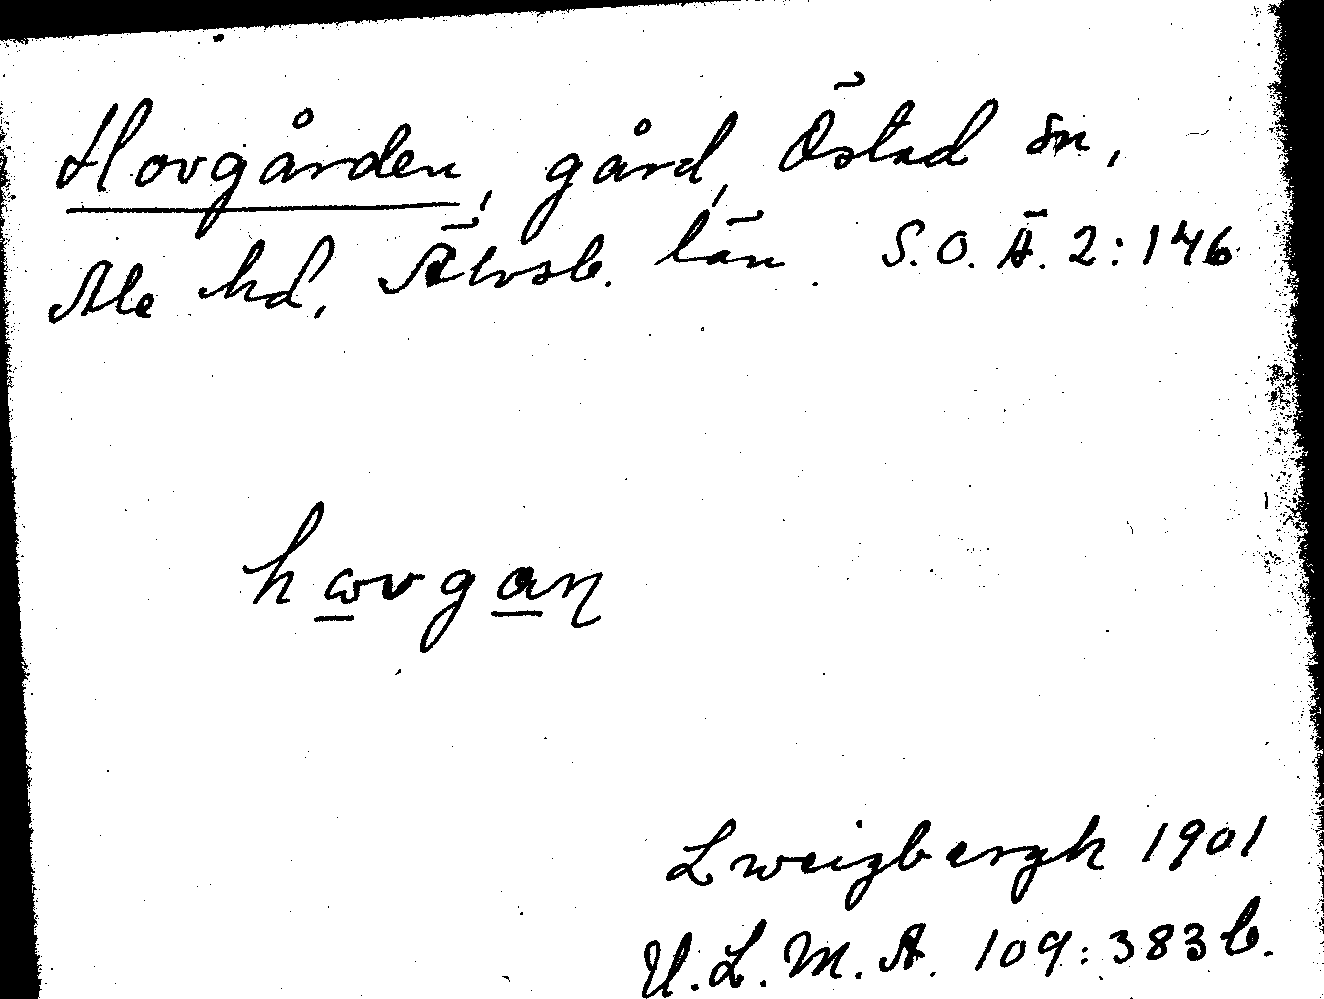 Hovgården, gård, Östad sn,
Ale hd, Älvsb. län. S.O.Ä. 2:146
hovgaɳ
Lweizbergh 1901
U.L.M.A. 109:383 b.